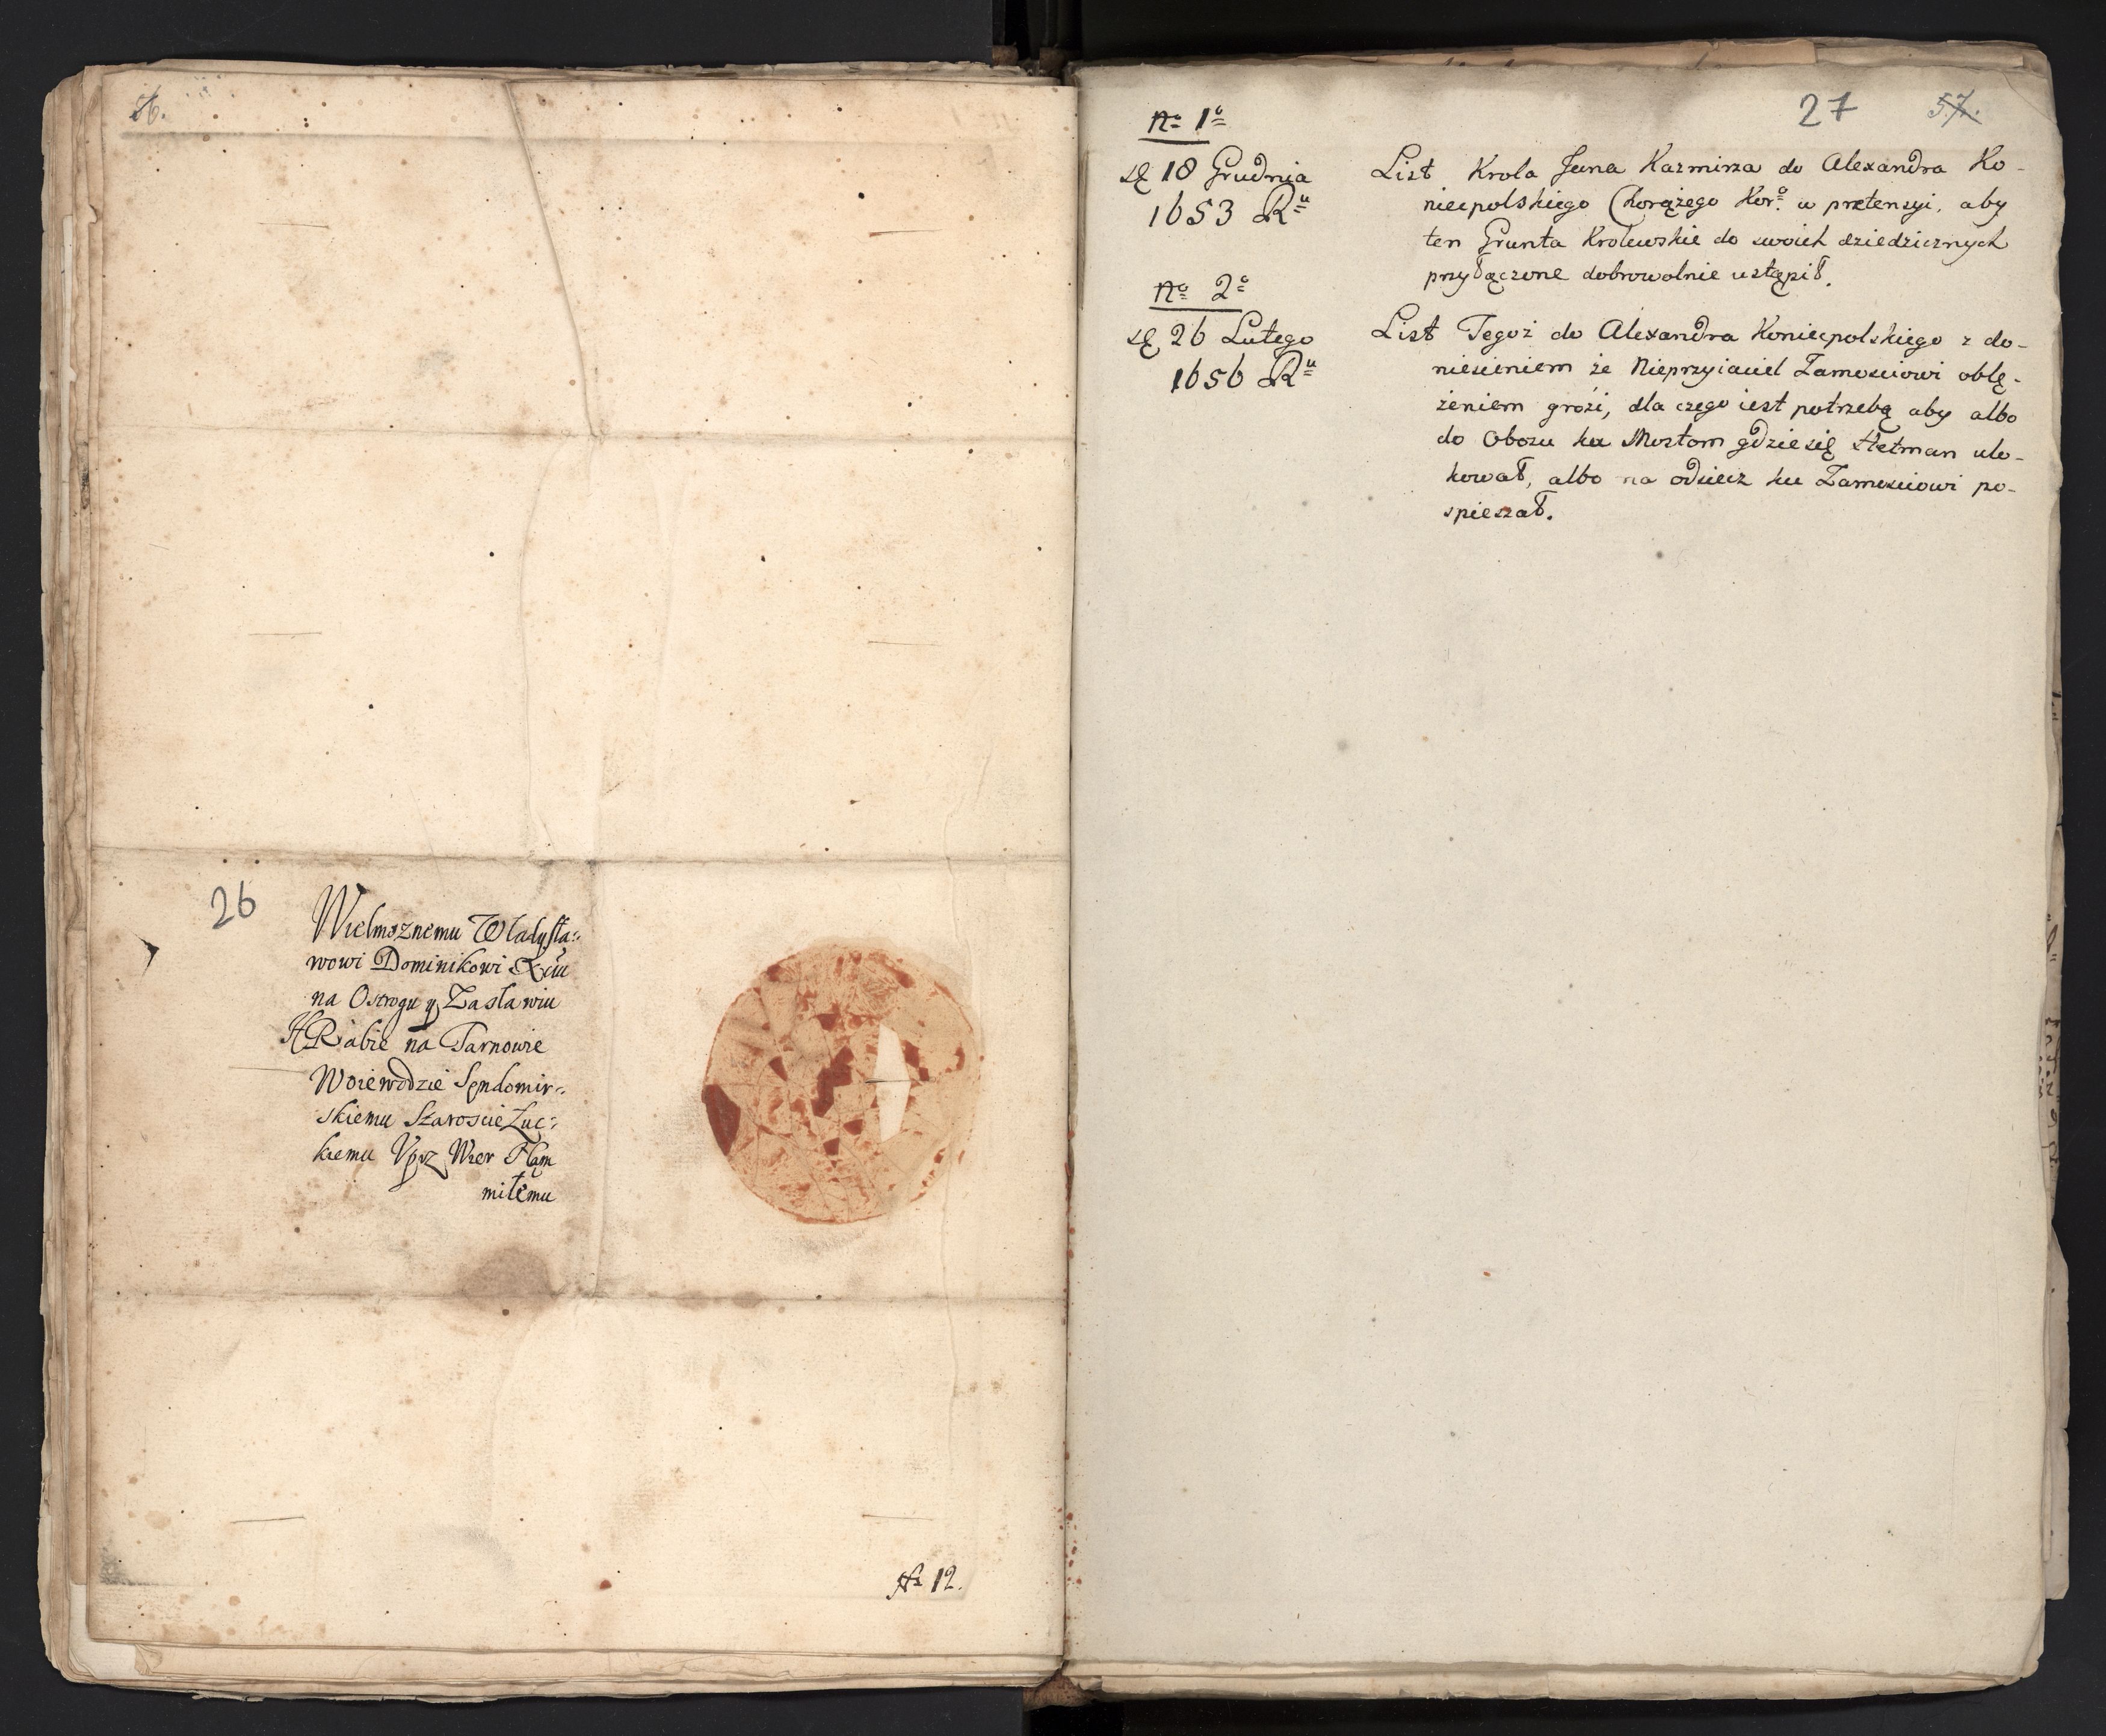 56.
26
Wielmoznemu Wladysła:
wowi Dominikowi Xciu
na Ostrogu y Zasławiu
HRabie na Tarnowie
Woiewodzie Sendomir:
skiemu Staroscie Łuc:
kiemu Vprz Wier Nam
miłemu
No 12.
27 57.
No 1o
18 Grudnia
1653 Ru
List Krola Jana Kazmirza do Alexandra Ko-
niecpolskiego Chorążego Koro. w pretensyi, aby
ten Grunta Krolewskie do swoich dziedzicznych
przyłączone dobrowolnie ustąpił.
No 2o
26 Lutego
1656 Ru
List Tegoż do Alexandra Koniecpolskiego z do-
niesieniem że Nieprzyiaciel Zamosciowi oblę-
żeniem grozi, dla czego iest potrzebą aby albo
do Obozu ku Mostom gdzie się Hetman ulo-
kował, albo na odsiecz ku Zamosciowi po-
spieszał.